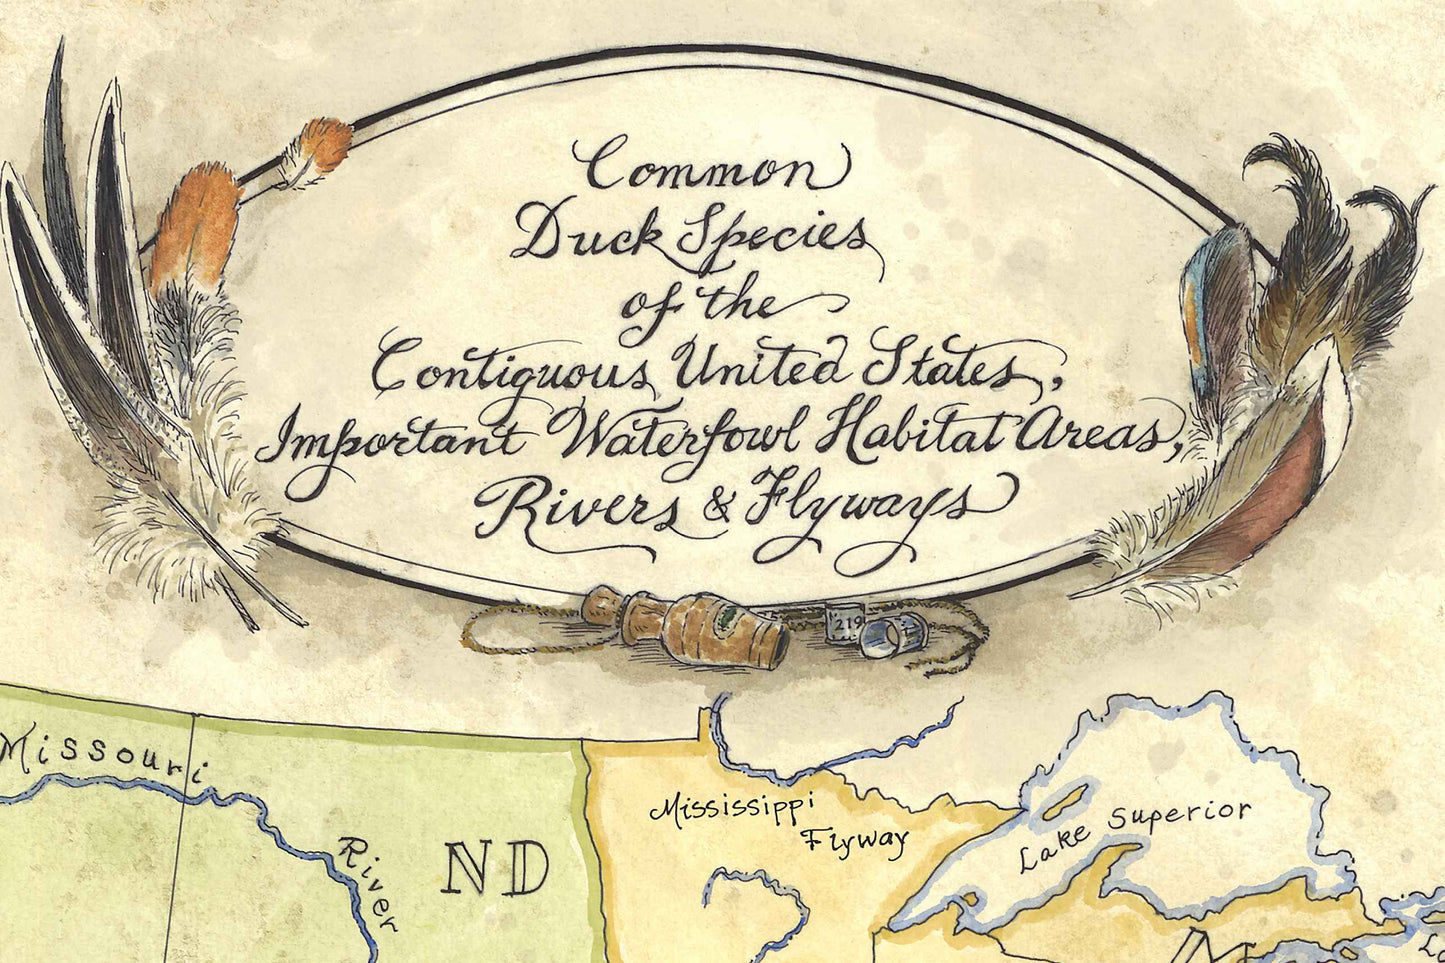 Common
Duck Species
of the
Contiguous United States,
Important Waterfowl Habitat Areas,
Rivers & Flyways
219
Missouri
River
ND
Mississippi
Flyway
Lake Superior